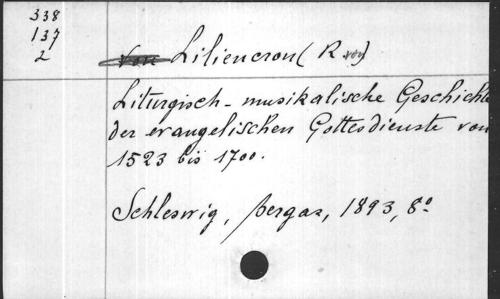 338
137
2
von Liliencron (R von)
Liturgisch-musikalische Geschichte
der evangelischen Gottesdienste von
1523 bis 1700.
Schleswig, Bergas, 1893, 8°